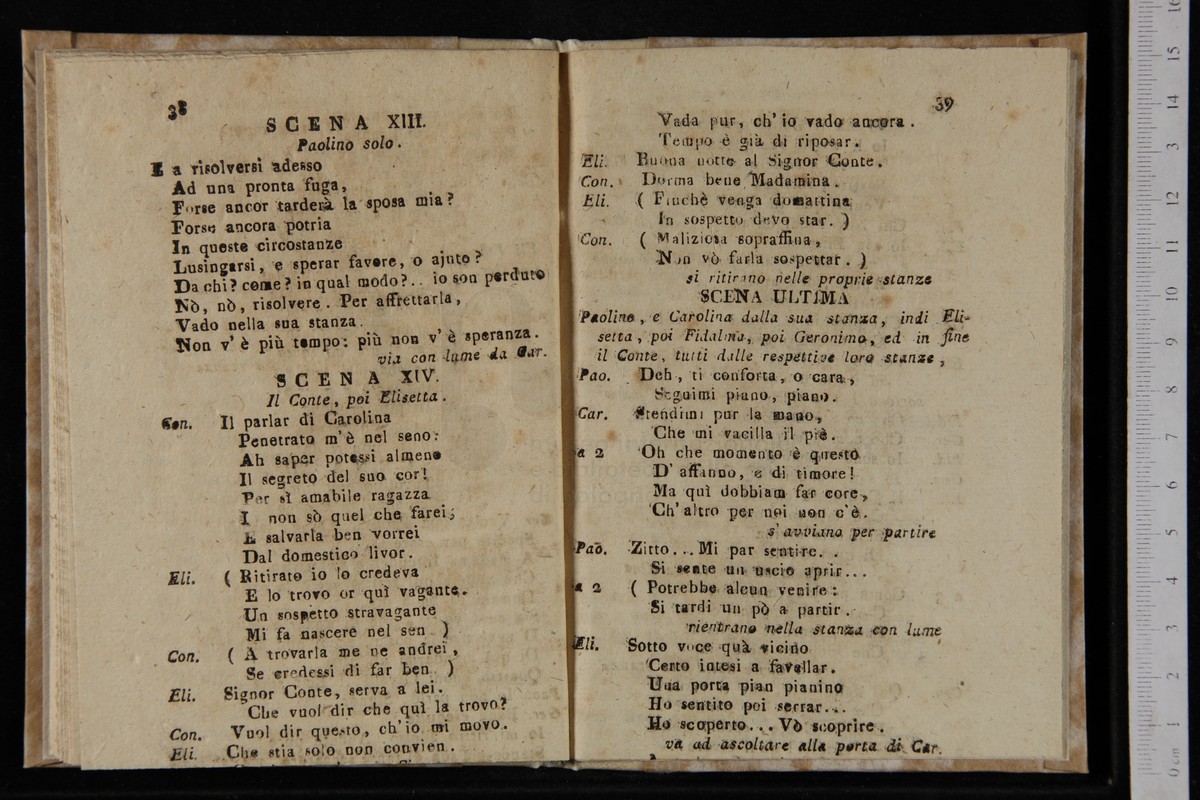 38
SCENA XIII.
Paolino solo.
E a risolversi adesso
Ad una pronta fuga,
Forse ancor tarderà la sposa mia?
Forse ancora potria
In queste circostanze
Lusingarsi, e sperar favore, o ajuto?
Da chi? come? in qual modo?.. io son perduto
Nò, nò, risolvere. Per affrettarla,
Vado nella sua stanza.
Non v'è più tempo: più non v'è speranza.
via con lume da Car.
SCENA XIV.
Il Conte, poi Elisetta.
Con. Il parlar di Carolina
Penetrato m'è nel seno:
Ah saper potessi almeno
Il segreto del suo cor!
Per sì amabile ragazza
I non sò quel che farei;
E salvarla ben vorrei
Dal domestico livor.
Eli. ( Ritirato io lo credeva
E lo trovo or quì vagante.
Un sospetto stravagante
Mi fa nascere nel sen )
Con. ( A trovarla me ne andrei,
Se credessi di far ben. )
Eli. Signor Conte, serva a lei.
Che vuol dir che quì la trovo?
Con. Vuol dir questo, ch'io mi movo.
Eli. Che stia solo non convien.
39
Vada pur, ch'io vado ancora.
Tempo è già di riposar.
Eli. Buona notte al Signor Conte.
Con. Dorma bene Madamina.
Eli. ( Finchè venga domattina
In sospetto devo star. )
Con. ( Maliziosa sopraffina,
Non vò farla sospettar. )
si ritirano nelle proprie stanze
SCENA ULTIMA
Paolino, e Carolina dalla sua stanza, indi Eli-
setta, poi Fidalma, poi Geronimo, ed in fine
il Conte, tutti dalle respettive loro stanze,
Pao. Deh, ti conforta, o cara,
Seguimi piano, piano.
Car. Stendimi pur la mano,
Che mi vacilla il piè.
a 2 Oh che momento è questo
D'affanno, e di timore!
Ma quì dobbiam far core,
Ch'altro per noi non c'è.
s'avviano per partire
Pao. Zitto... Mi par sentire. .
Si sente un uscio aprir...
a 2 ( Potrebbe alcun venire:
Si tardi un pò a partir.
rientrano nella stanza con lume
Eli. Sotto voce quà vicino
Certo intesi a favellar.
Una porta pian pianino
Ho sentito poi serrar...
Ho scoperto... Vò scoprire.
va ad ascoltare alla porta di Car.